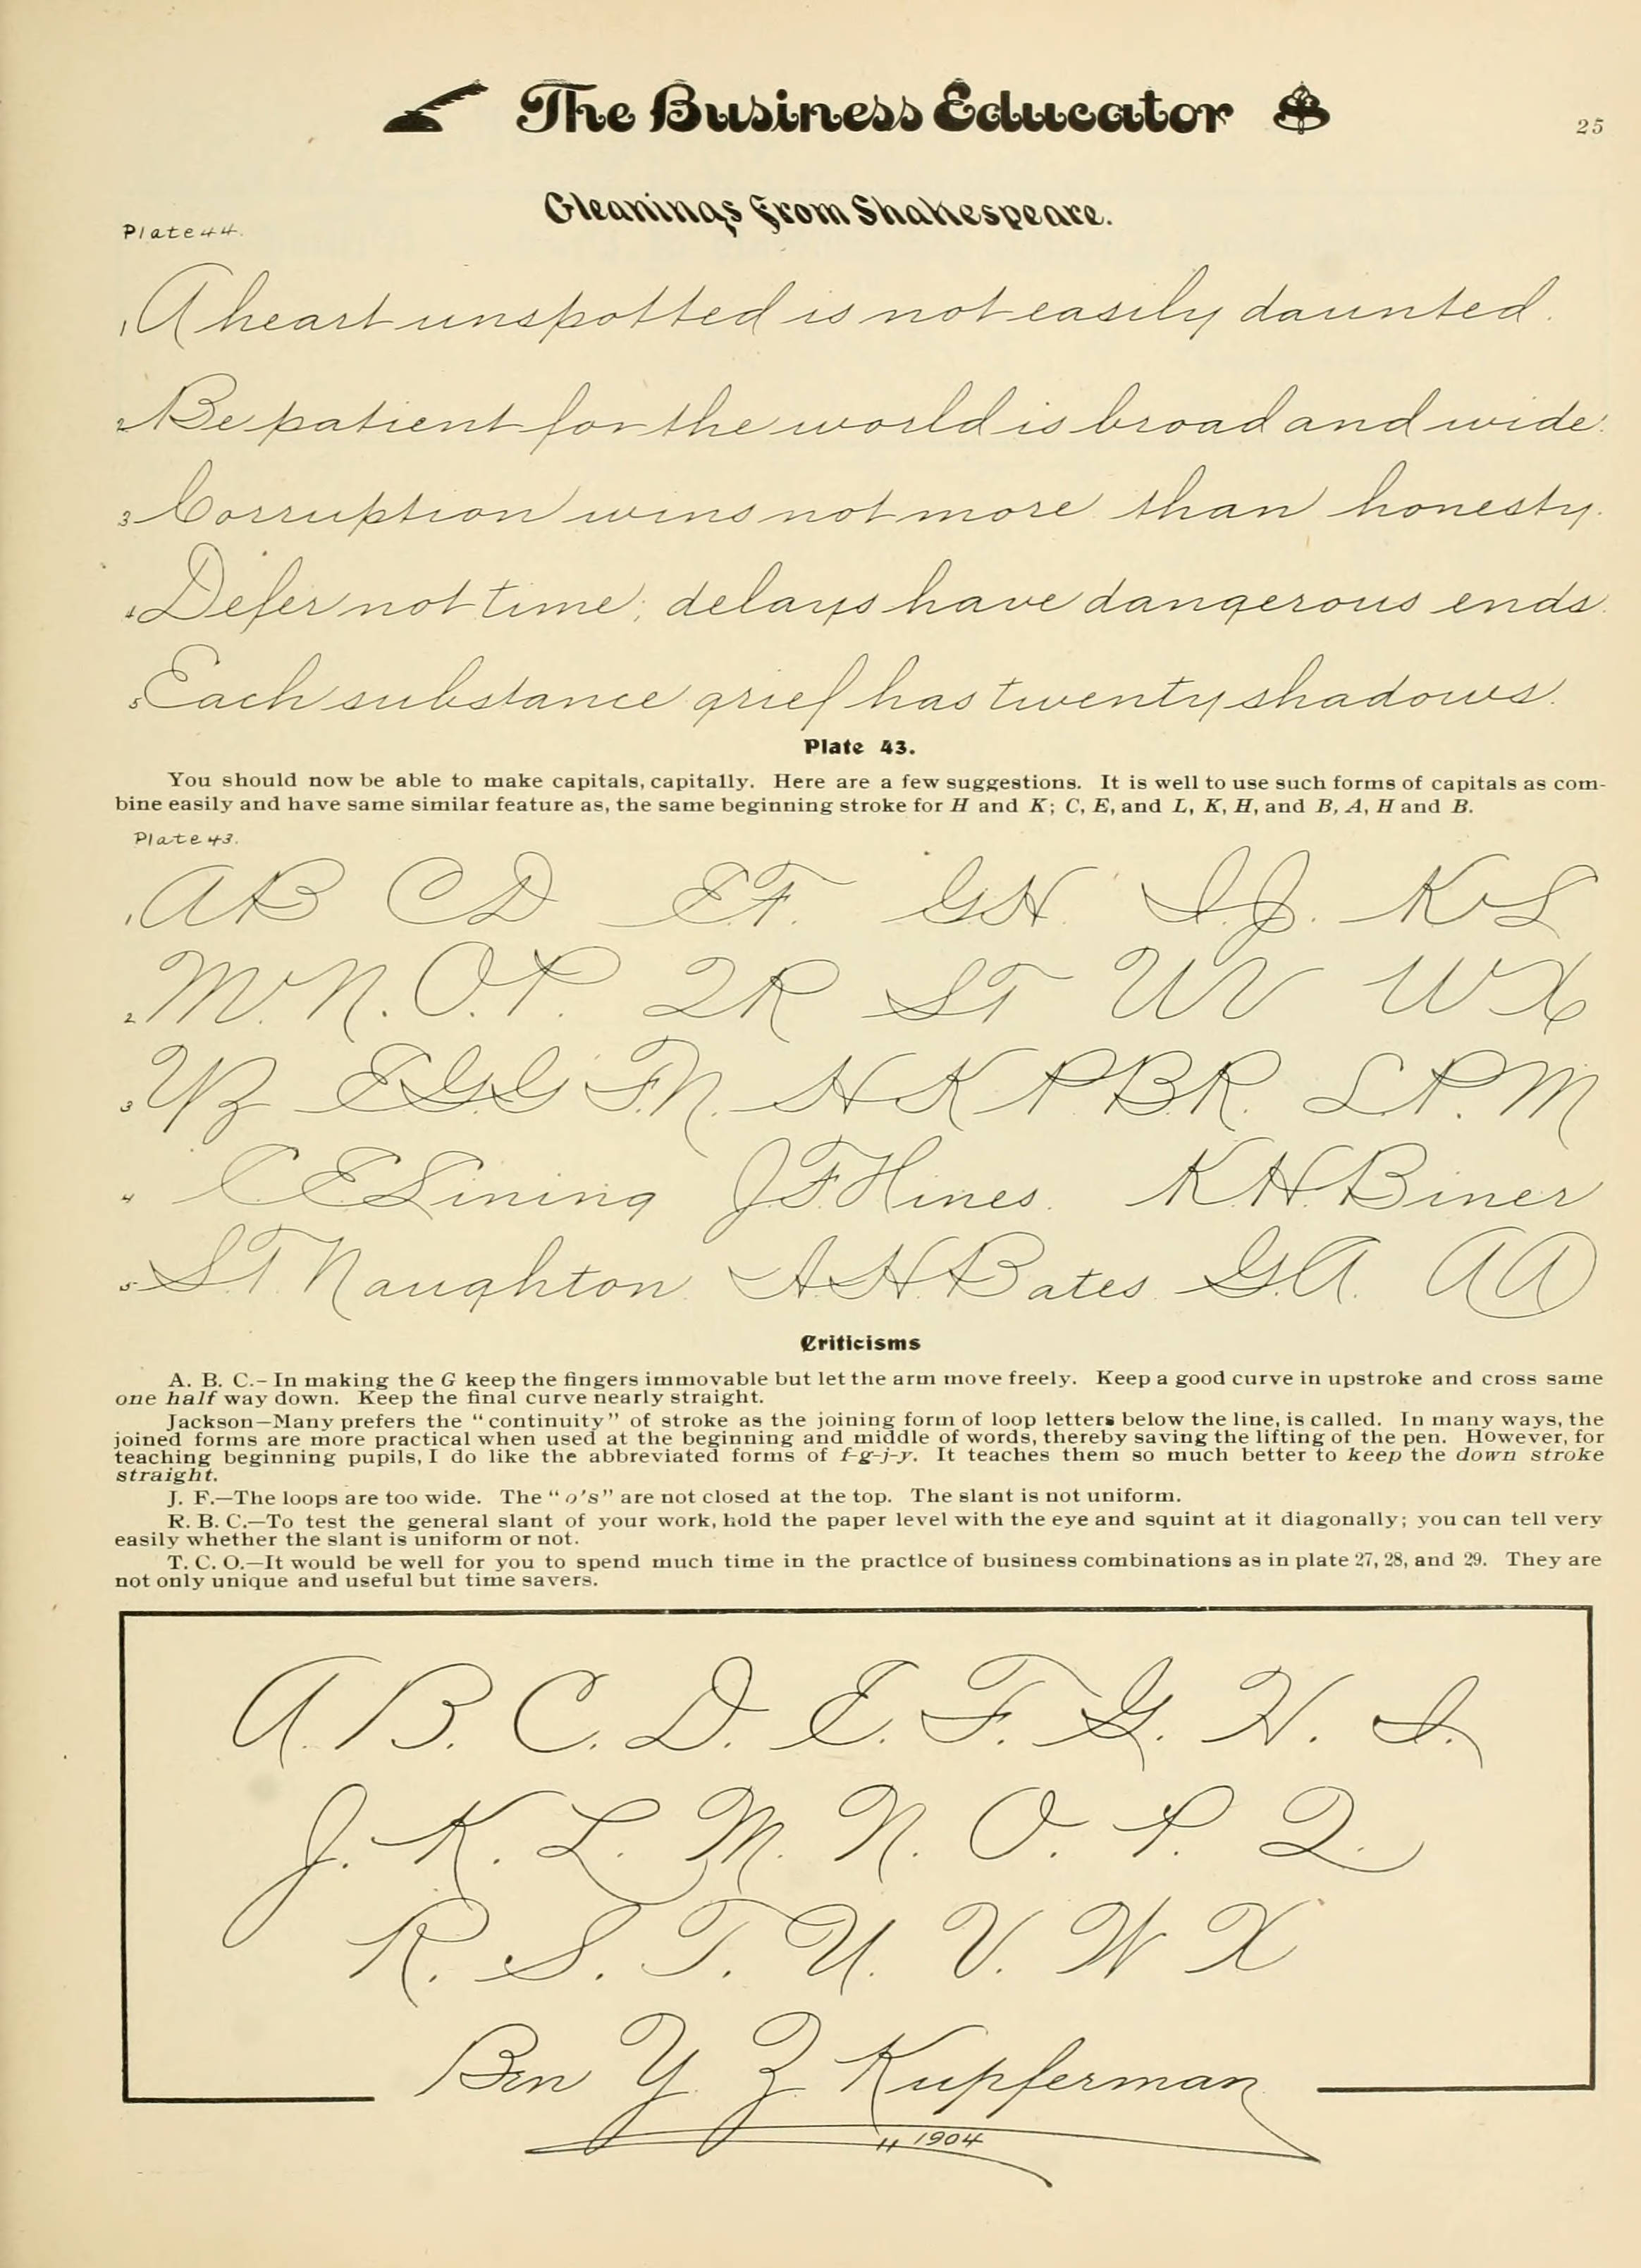 The Business Educator
25
Gleanings from Shakespeare.
Plate 44.
1 A heart unspotted is not easily daunted.
2 Be patient for the world is broad and wide.
3 Corruption wins not more than honesty.
4 Defer not time; delays have dangerous ends.
5 Each substance grief has twenty shadows.
Plate 43.
You should now be able to make capitals, capitally. Here are a few suggestions. It is well to use such forms of capitals as com-
bine easily and have same similar feature as, the same beginning stroke for H and K; C, E, and L, K, H, and B, A, H and B.
Plate 43.
1 AB CD E.F. G.H. I.J. KL
2 M.N. O.P. QR ST UV WX
3 YZ E.G.G F.N. H K P B.R. L.P.M
4 C.E. Lining J.F. Hines. K.H. Biner
5 S.T. Naughton. A.H. Bates. G.A. AA
Criticisms
A. B. C.- In making the G keep the fingers immovable but let the arm move freely. Keep a good curve in upstroke and cross same
one half way down. Keep the final curve nearly straight.
Jackson—Many prefers the "continuity" of stroke as the joining form of loop letters below the line, is called. In many ways, the
joined forms are more practical when used at the beginning and middle of words, thereby saving the lifting of the pen. However, for
teaching beginning pupils, I do like the abbreviated forms of f-g-j-y. It teaches them so much better to keep the down stroke
straight.
J. F.—The loops are too wide. The "o's" are not closed at the top. The slant is not uniform.
R. B. C.—To test the general slant of your work, hold the paper level with the eye and squint at it diagonally; you can tell very
easily whether the slant is uniform or not.
T. C. O.—It would be well for you to spend much time in the practice of business combinations as in plate 27, 28, and 29. They are
not only unique and useful but time savers.
A. B. C. D. E. F. G. H. I.
J. K. L. M. N. O. P. Q.
R. S. T. U. V. W X
Ben Y Z Kupferman
1904